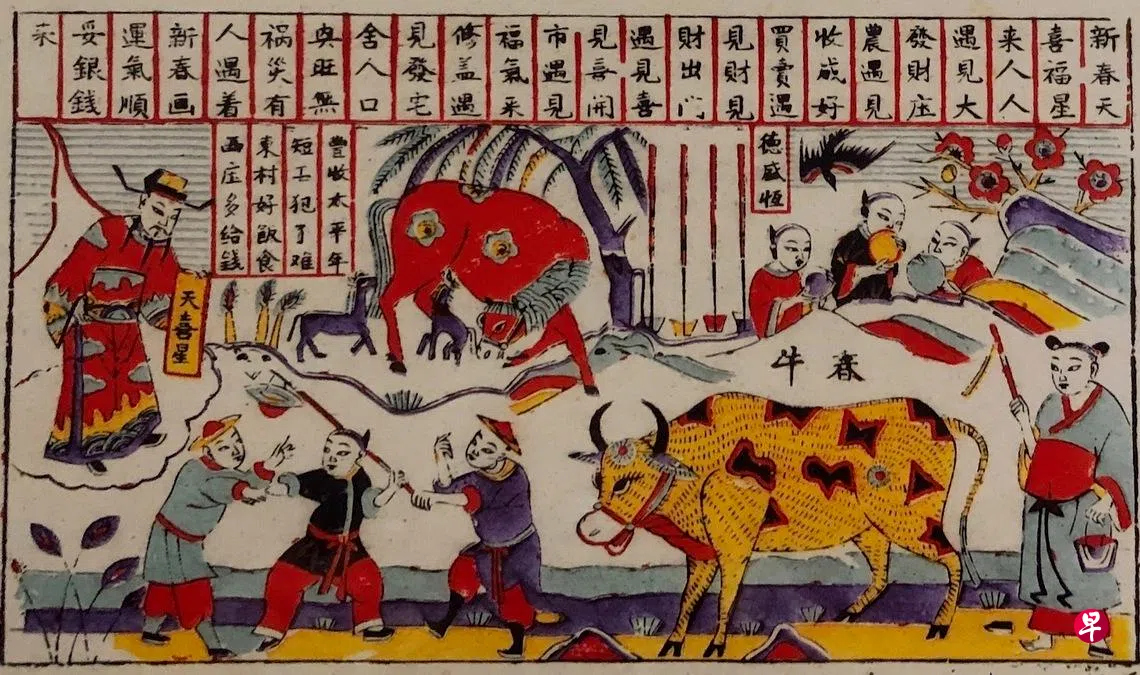 新春天
喜福星
来人人
遇見大
發財庄
農遇見
收成好
買賣遇
見財見
財出门
遇見喜
見喜開
市遇見
福氣来
修盖遇
見發宅
舍人口
興旺無
祸災有
人遇着
新春画
運氣順
妥銀钱
来
德盛恆
豐收太平年
短工犯了难
東村好飯食
西庄多给錢
天喜星
春牛
早